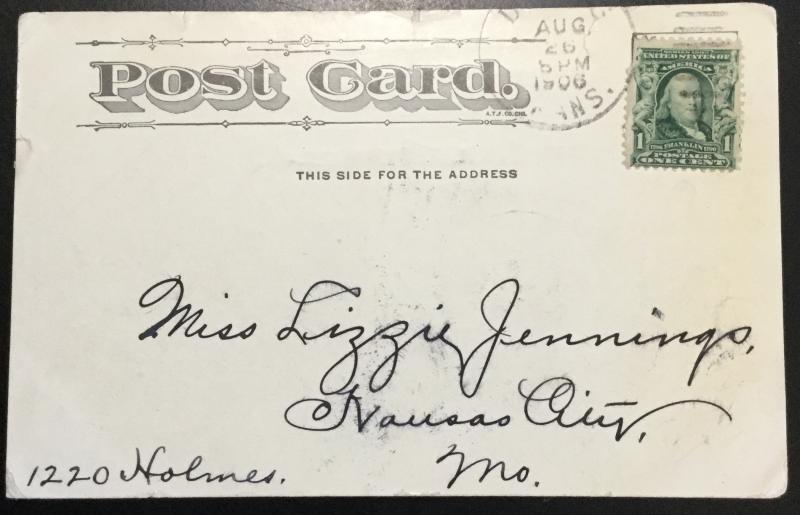 AUG
26
6 PM
1906
UNITED STATES OF
AMERICA
FRANKLIN
1 POSTAGE 1
ONE CENT
Post Card.
A.T.F. CO. CHI.
THIS SIDE FOR THE ADDRESS
Miss Lizzie Jennings,
Kansas City,
1220 Holmes. Mo.